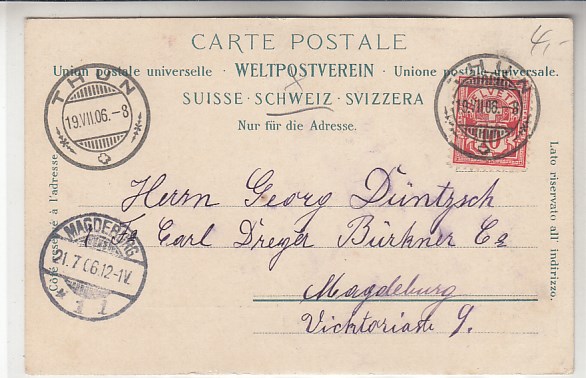 4,-
CARTE POSTALE
Union postale universelle · WELTPOSTVEREIN · Unione postale universale.
SUISSE · SCHWEIZ · SVIZZERA
Nur für die Adresse.
THUN
19.VII.06.-8
THUN
19.VII.06.-8
HELVE
10
Côté réservé à l'adresse
Lato riservato all' indirizzo.
Herrn Georg Düntzsch
Carl Dreyer Bürkner Co
Magdeburg
Vicktoriastr 9.
MAGDEBURG
21.7.06.12-1V.
* 1 1